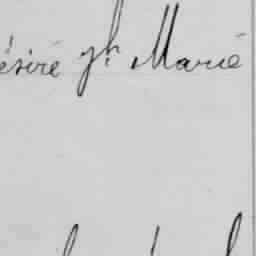 ésiré Jh Marie